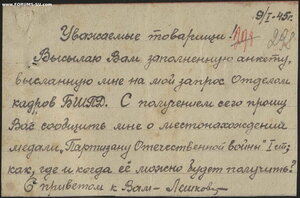 www.FORUMS-SU.com
9/I-45г.
Уважаемые товарищи!
292
Высылаю Вам заполненную анкету,
высланную мне на мой запрос Отделом
кадров БШПД. С получением сего прошу
Вас сообщить мне о местонахождении
медали "Партизану Отечественной войны" I ст.
как, где и когда её можно будет получить?
С приветом к Вам-